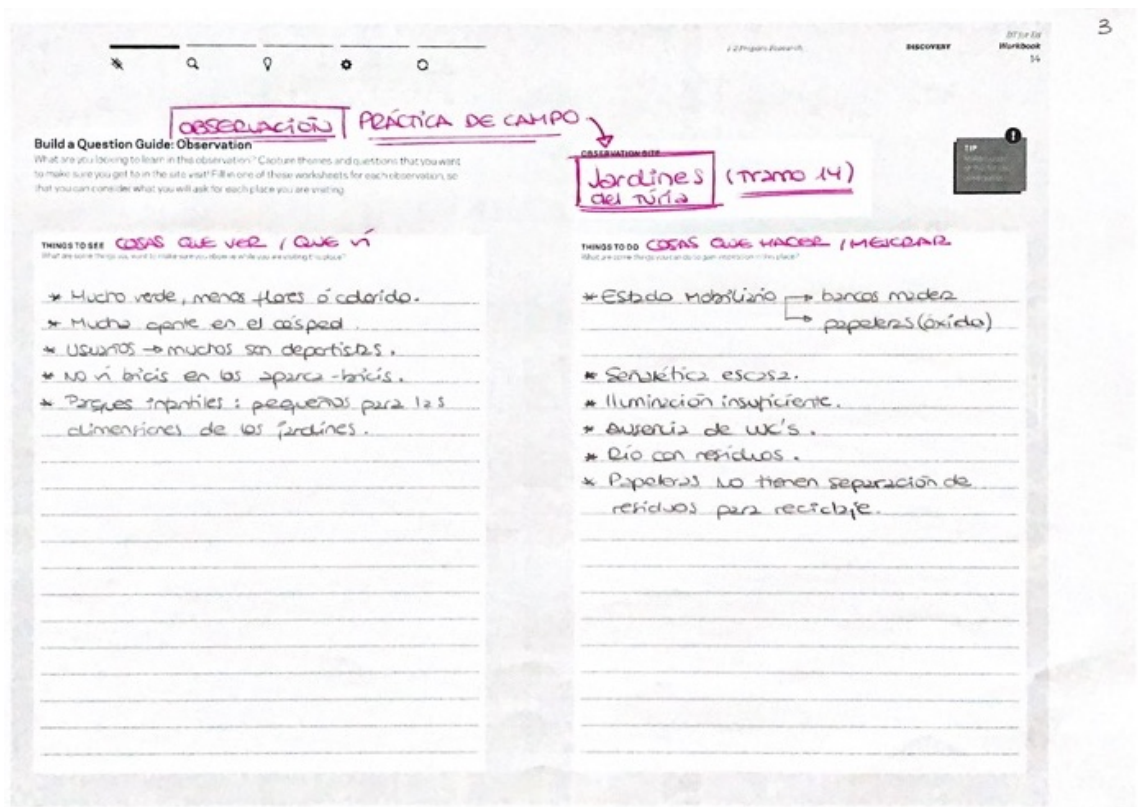 3
1.2 Prepare Research
DISCOVERY
DT for Ed
Workbook
14
OBSERVACIÓN PRÁCTICA DE CAMPO
Build a Question Guide: Observation
What are you looking to learn in this observation? Capture themes and questions that you want
to make sure you get to in the site visit! Fill in one of these worksheets for each observation, so
that you can consider what you will ask for each place you are visiting.
OBSERVATION SITE
Jardines (Tramo 14)
del Túria
TIP
THINGS TO SEE COSAS QUE VER / QUE VÍ
What are some things you want to make sure you observe while you are visiting this place?
* Mucho verde, menos flores ó colorido.
* Mucha gente en el césped.
* Usuarios → muchos son deportistas.
* No ví bicis en los aparca-bicis.
* Parques infantiles: pequeños para las
dimensiones de los jardines.
THINGS TO DO COSAS QUE HACER / MEJORAR
What are some things you can do to gain inspiration in this place?
* Estado Mobiliario → bancos madera
→ papeleras (óxido)
* Señalética escasa.
* Iluminación insuficiente.
* Ausencia de WC's.
* Río con residuos.
* Papeleras no tienen separación de
residuos para reciclaje.